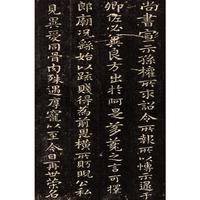 尚書宣示孫權所求詔令所報所以博示逮于
卿佐必冀良方出於阿是芻蕘之言可擇
郎廟況繇始以疏賤得為前恩橫所盼睨公私
見異愛同骨肉殊遇厚寵以至今日再世榮名